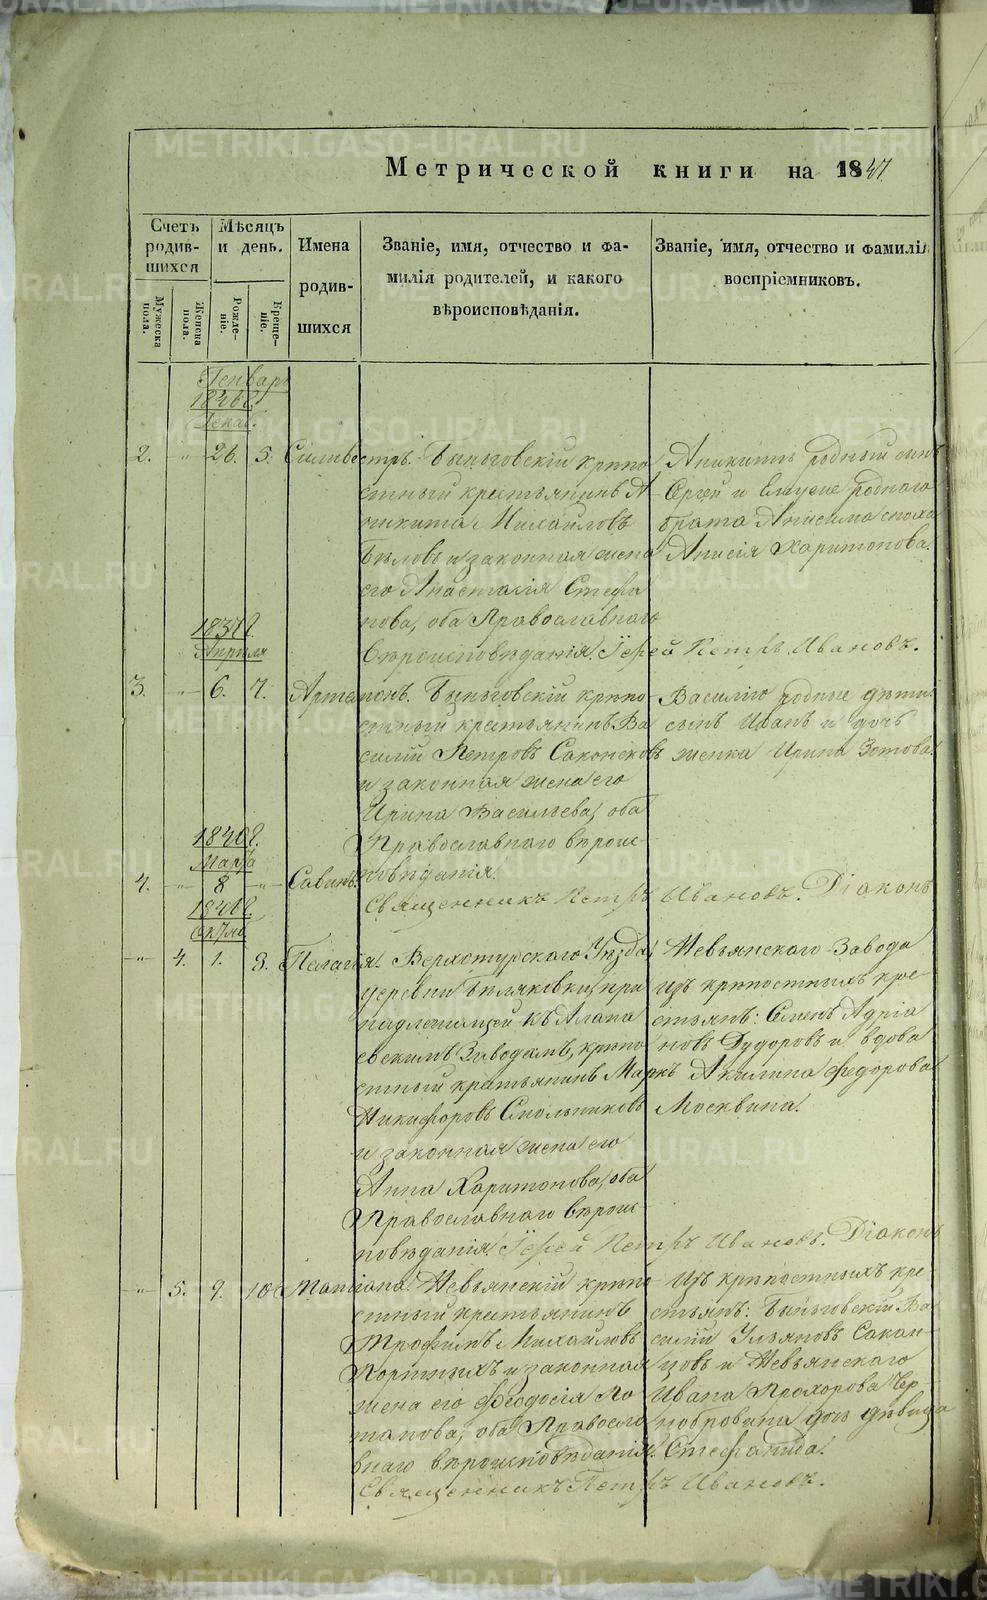 Метрической книги на 1847.
Счетъ родив-шихся
Мѣсяцъ и день.
Имена родив-шихся
Званіе, имя, отчество и фа-
милія родителей, и какого
вѣроисповѣданія.
Званіе, имя, отчество и фамилія
воспріемниковъ.
Мужеска пола.
Женска пола.
Рожде-ніе.
Креще-ніе.
Генварь
1846 г.
Декаб.
2. -"- 26. 5. Сильвестръ. Быньговскій крѣпо-
стный крестьянинъ А-
никита Михайловъ
Бѣловъ и законная жена
его Анастасія Стефа
нова, оба Православнаго
вѣроисповѣданія. Іерей Петръ Ивановъ.
Аникиты родный сынъ
Сергей и Емуже роднаго
брата Анисима сноха
Анисія Харитонова.
1837 г.
Апрѣля
3. -"- 6. 7. Артамонъ. Быньговскій крѣпо-
стный крестьянинъ Ва
силій Петровъ
и законная жена его
Ирина Васильева, оба
Православнаго вѣроис-
повѣданія.
Василію родные дѣти:
сынъ Иванъ и дочь
женка Ирина Зотова.
1840 г.
Марта
4. -"- 8 -"- Савинъ.
Священникъ Петръ Ивановъ. Діаконъ
1846 г.
Октяб.
-"- 4. 1. 8. Пелагія. Верхотурскаго Уѣзда,
деревни Бѣляковки, при
надлежащей къ Алапа
евскимъ Заводамъ, крѣпо
стный крестьянинъ Маркъ
Никифоровъ Смольниковъ
и законная жена его
Анна Харитонова, оба
Православнаго вѣроис-
повѣданія. Іерей Петръ Ивановъ. Діаконъ
Невьянскаго Завода
изъ крѣпостныхъ кре-
стьянъ: Семенъ Адріа
новъ Дудоровъ и вдова
Акилина Федорова
Москвина.
-"- 5. 9. 10 Татіана. Невьянскій крѣпо-
стный крестьянинъ
Трофимъ Михайловъ
Портныхъ и законная
жена его Феодосія По
тапова, оба Правосла
внаго вѣроисповѣданія.
Священникъ Петръ Ивановъ.
Изъ крѣпостныхъ кре-
стьянъ: Быньговскій Ва-
силій Ульяновъ Сакан-
цовъ и Невьянскаго
Ивана Прохорова Чер-
нобровина дочь дѣвица
Стефанида.